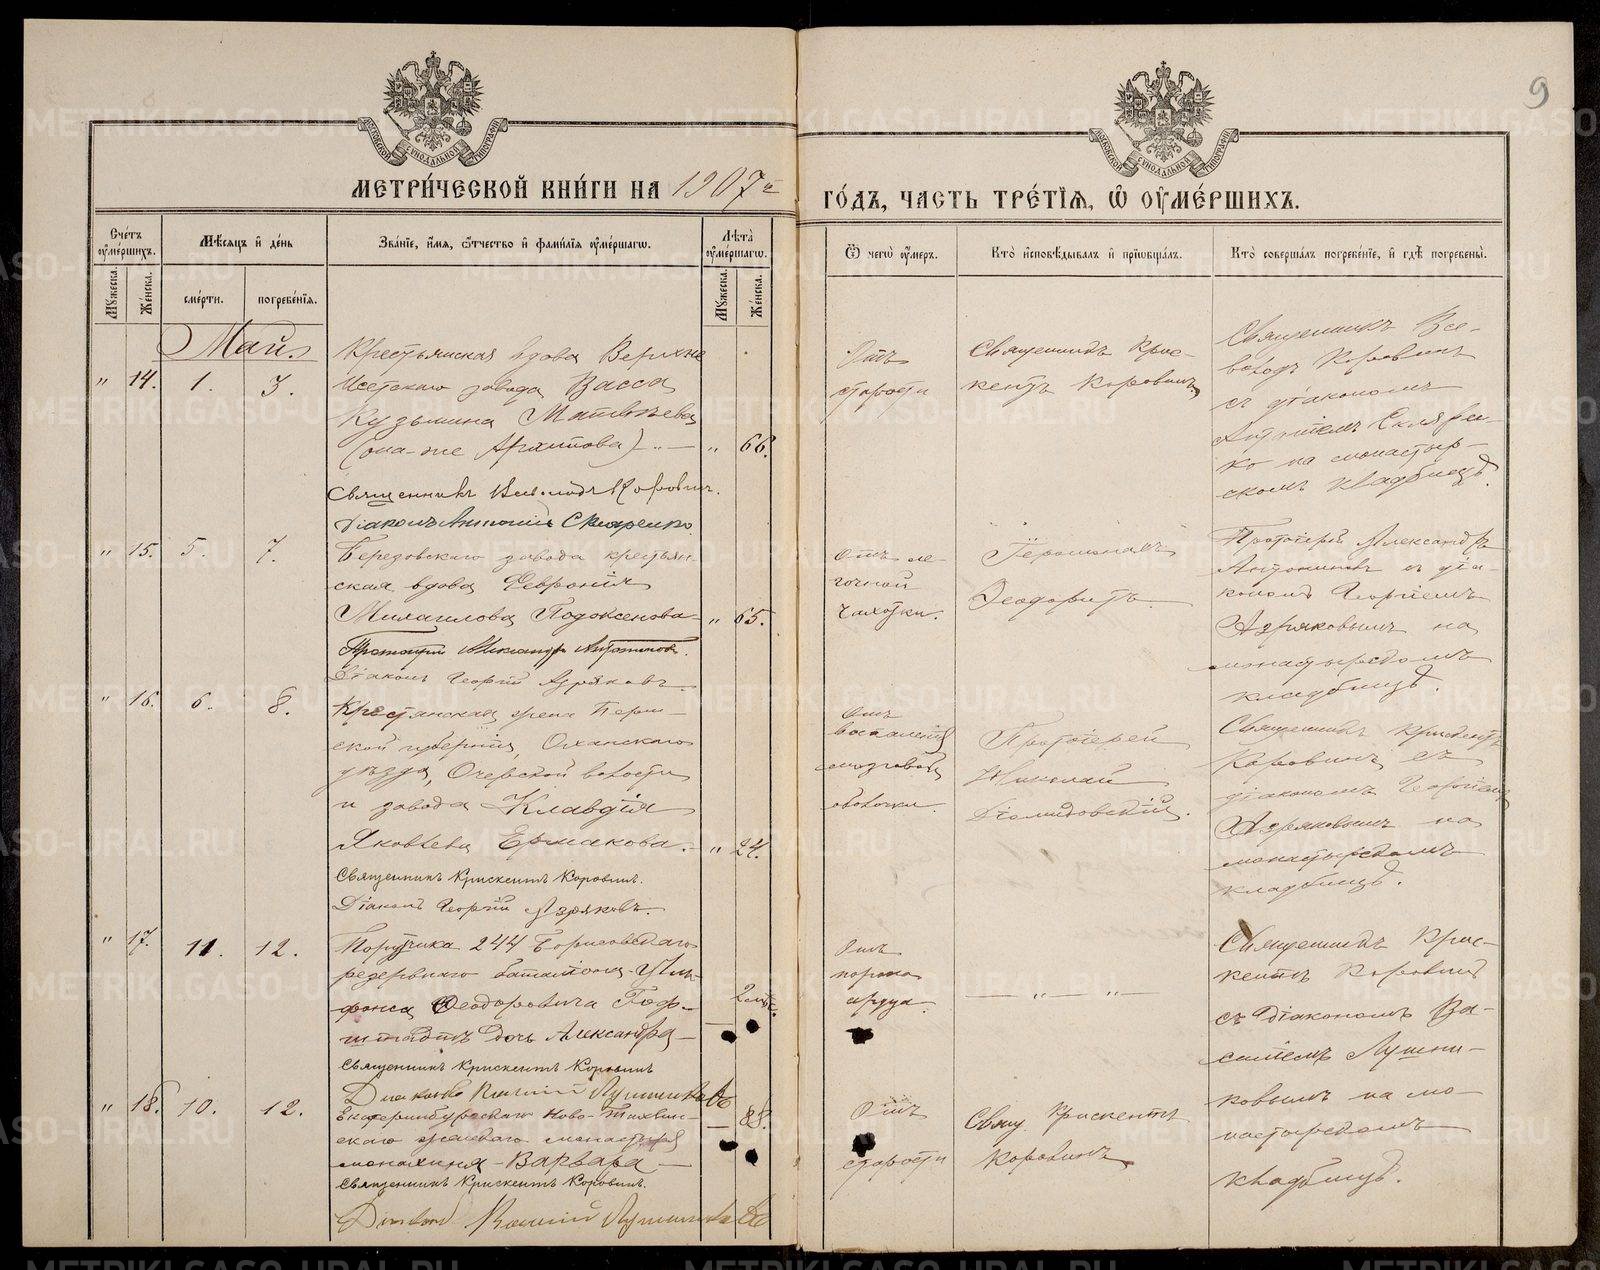 9
МЕТРИ́ЧЕСКОЙ КНИ́ГИ НА 1907й ГО́ДЪ, ЧАСТЬ ТРЕ́ТІѦ, Ѡ ОУМЕ́РШИХЪ.
Сче́тъ оуме́ршихъ.
Мѣсѧцъ и де́нь
Зва́ніе, и́мѧ, ѻтчество и фами́лїѧ оуме́ршагѡ.
Лѣта̀ оуме́ршагѡ.
Ѿ чегѡ̀ оумеръ.
Кто̀ исповѣ́дывалъ и прїѡбща́лъ.
Кто̀ соверша́лъ погребе́нїе, и гдѣ̀ погребены̀.
Мꙋжеска.
Же́нска.
сме́рти.
погребе́нїѧ.
Мꙋжеска.
Же́нска.
Май.
" 14. 1. 3.
Крестьянская вдова Верхне
Исетскаго завода Васса
Кузьмина Матвѣева
(она-же Архипова) " 66.
Священникъ Всеволодъ Коровинъ.
Діаконъ Антоній Скляренко
Отъ
старости
Священникъ Крис-
кентъ Коровинъ
Священникъ Все-
володъ Коровинъ
съ діакономъ
Антоніемъ Скларен-
ко на монастыр-
скомъ кладбищѣ.
" 15. 5. 7.
Березовскаго завода крестьян-
ская вдова Февронія
Михаилова Подоксенова " 65.
Протоіерей Александръ Антониновъ.
Діаконъ Георгій Азряковъ
Отъ ле-
гочной
чахотки.
Іеромонахъ
Ѳеодоритъ
Протоіерей Александръ
Антониновъ съ діа-
кономъ Георгіемъ
Азряковымъ на
монастырскомъ
кладбищѣ.
" 16. 6. 8.
Крестьянская жена Перм-
ской губерніи, Оханскаго
уѣзда, Очерской волости
и завода Клавдія
Яковлева Ермакова. " 24.
Священникъ Крискентъ Коровинъ.
Діаконъ Георгій Азряковъ.
Отъ
воспаленія
мозговой
оболочки.
Протоіерей
Николай
Діомидовскій.
Священникъ Крискентъ
Коровинъ съ
діакономъ Георгіемъ
Азряковымъ на
монастырскомъ
кладбищѣ.
" 17. 11. 12.
Поручика 244 Борисовскаго
резервнаго баталіона
Ѳеодоровича Гоф-
дочь Александра
Священникъ Крискентъ Коровинъ
Діаконъ Василій Лушниковъ
2 мѣс.
Отъ
порока
сердца.
— " — " —
Священникъ Крис-
кентъ Коровинъ
съ діакономъ Ва-
силіемъ Лушни-
ковымъ на мо-
настырскомъ
кладбищѣ.
" 18. 10. 12.
Екатеринбургскаго Ново-Тихвин-
скаго женскаго монастыря
монахиня - Варвара —
Священникъ Крискентъ Коровинъ.
Діаконъ Василій Лушниковъ
— 88.
Отъ
старости
Свящ. Крискентъ
Коровинъ
METRIKI.GASO-URAL.RU